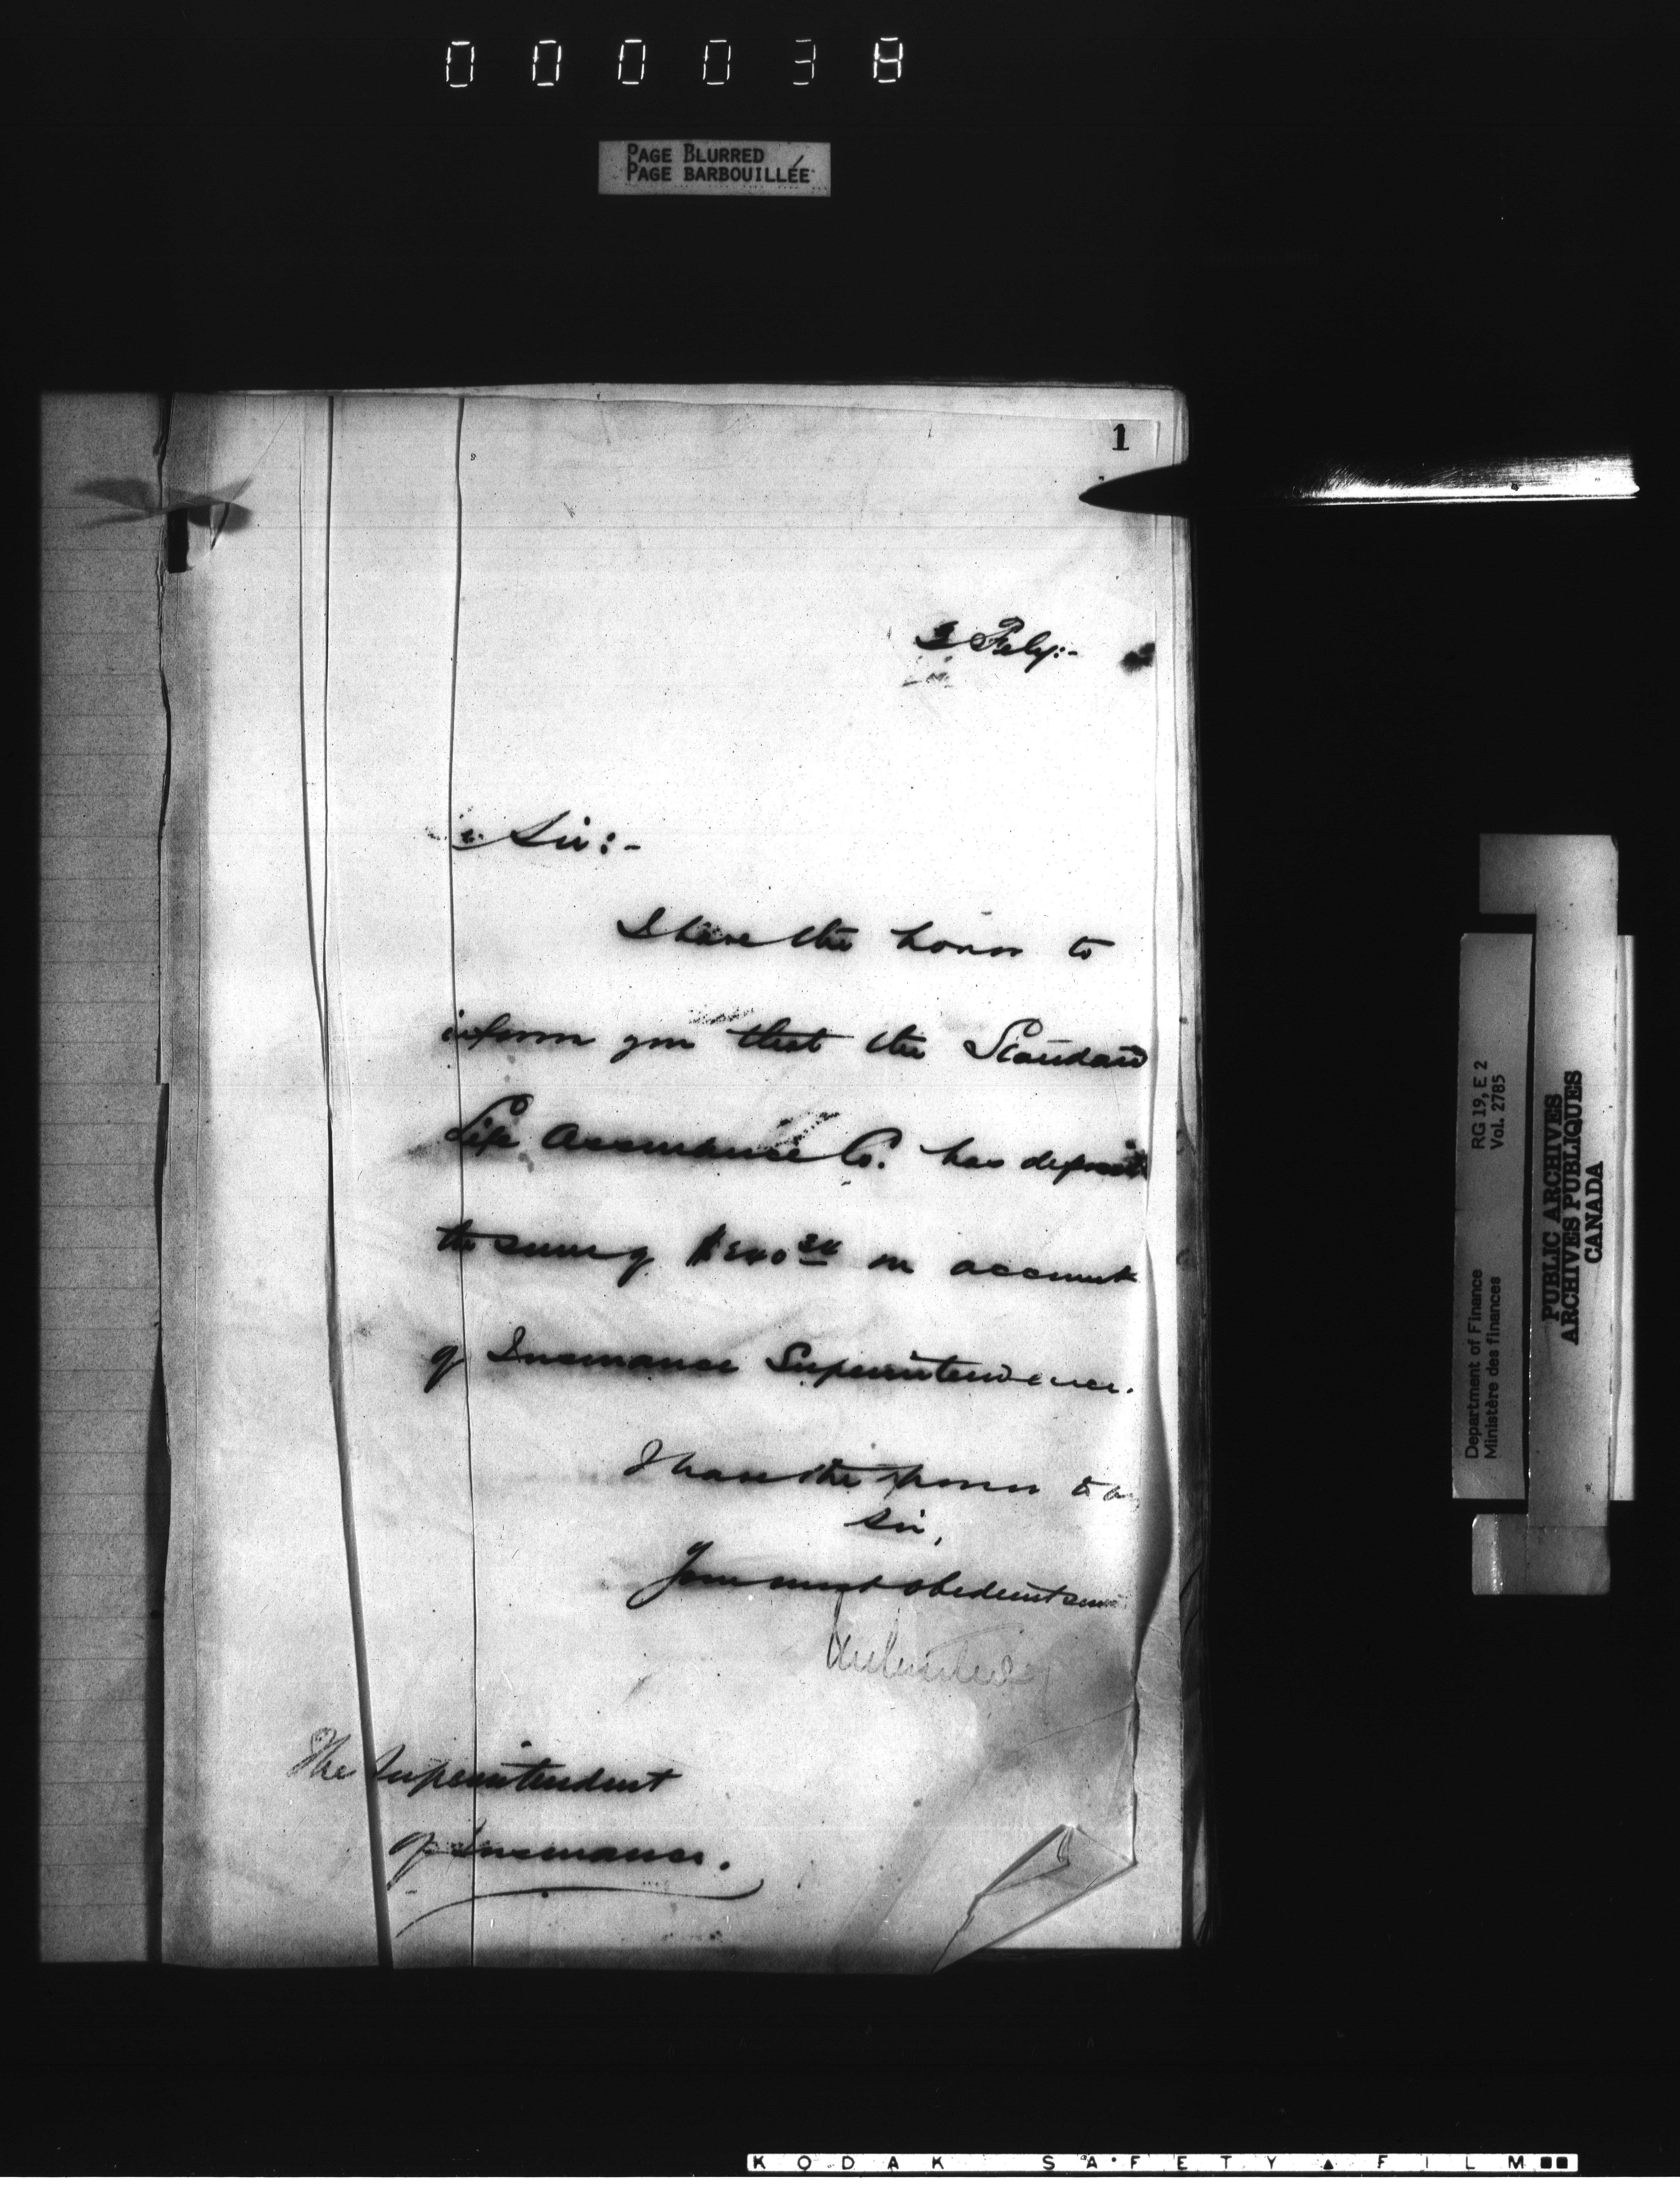 000038
PAGE BLURRED
PAGE BARBOUILLÉE
1
2 Feby:-
Sir:-
I have the honor to
inform you that the Standard
Life Assurance Co. has deposit
the sum of on account
of Insurance Superintendence.
I have the honor to be
Sir,
Your most obedient serv
The Superintendent
of Insurance.
RG 19, E 2
Vol. 2785
Department of Finance
Ministère des finances
PUBLIC ARCHIVES
ARCHIVES PUBLIQUES
CANADA
KODAK SAFETY FILM